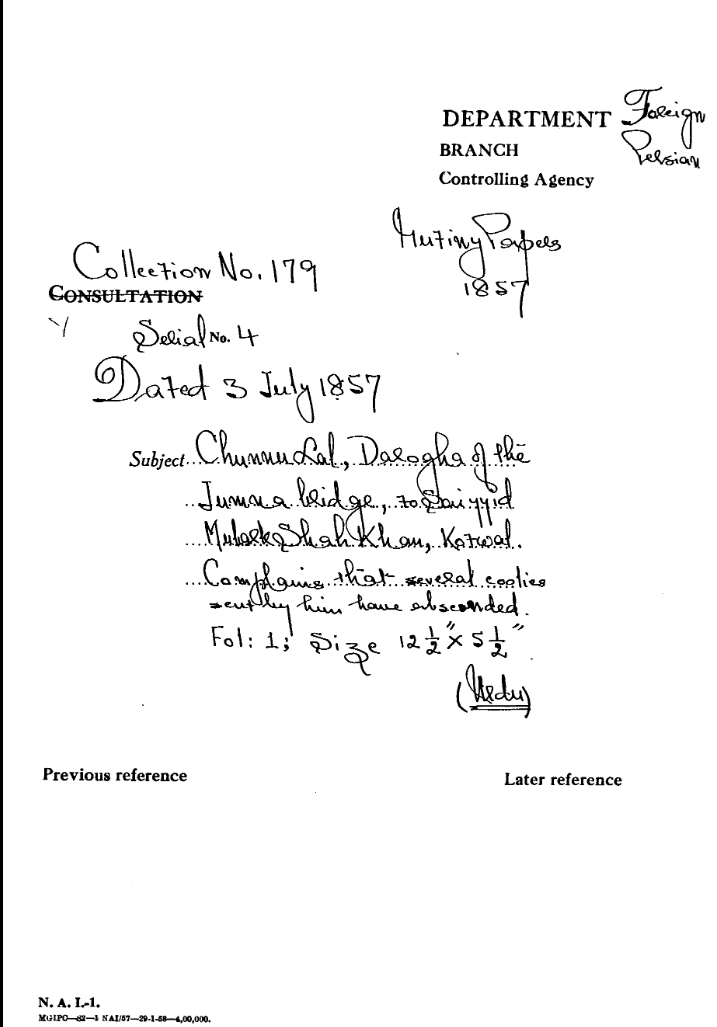 DEPARTMENT Foreign
BRANCH Persian
Controlling Agency
Mutiny Papers
1857
Collection No. 179
CONSULTATION
Serial No. 4
Dated 3 July 1857
Subject Chunnu Lal, Darogha of the
Jumna bridge, to Saiyyid
Mubarak Shah Khan, Kotwal.
Complains that several coolies
sent by him have absconded.
Fol: 1; Size 12 1/2" x 5 1/2"
(Urdu)
Previous reference
Later reference
N. A. I.-1.
MGIPC—82—1 NAI/57—29-1-58—4,00,000.